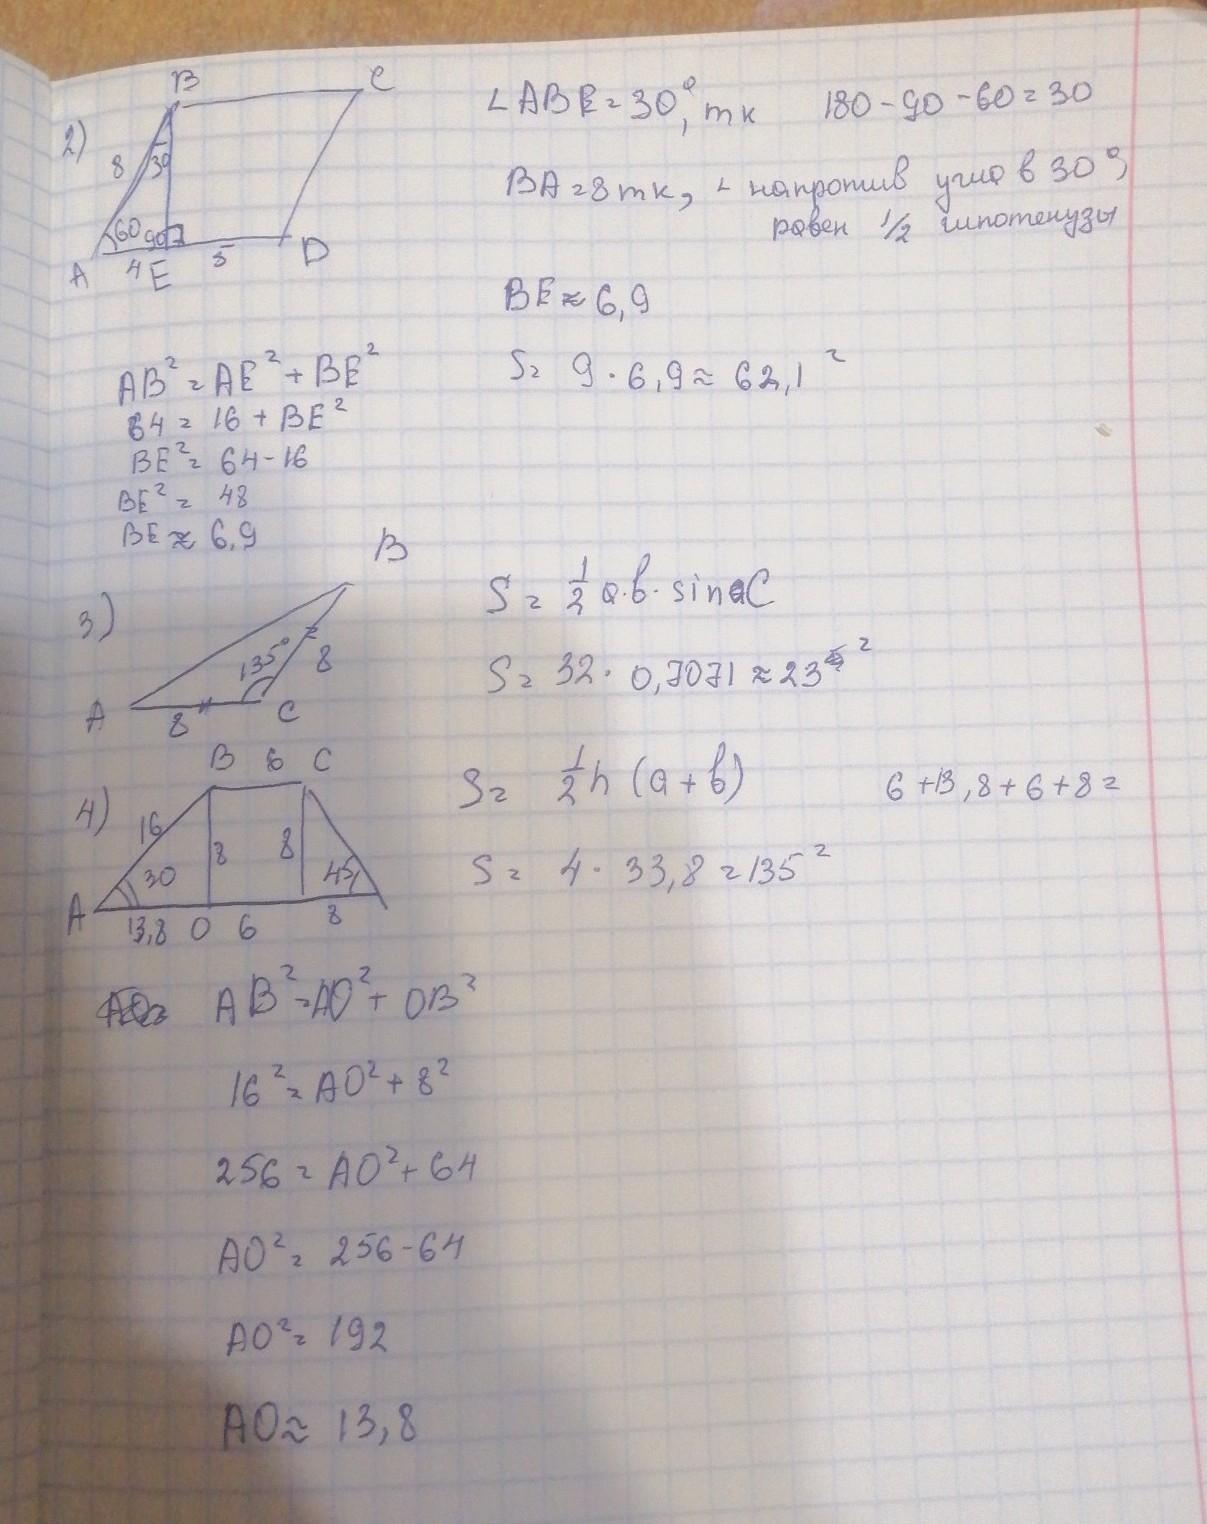 2)
B C
8 30
60 90
A 4 E 5 D
∠ABE = 30°, тк 180-90-60=30
BA=8 тк, ∠ напротив угла в 30°,
равен 1/2 гипотенузы
BE ≈ 6,9
S = 9 · 6,9 ≈ 62,1²
AB² = AE² + BE²
64 = 16 + BE²
BE² = 64-16
BE² = 48
BE ≈ 6,9
3)
B
135° 8
A 8 C
S = 1/2 a·b· sin C
S = 32 · 0,7071 ≈ 23 ²
4)
B 6 C
16 8 8
30 45
A 13,8 O 6 8
S = 1/2 h (a + b) 6+13,8+6+8=
S = 4 · 33,8 = 135²
AB² = AO² + OB²
16² = AO² + 8²
256 = AO² + 64
AO² = 256-64
AO² = 192
AO ≈ 13,8